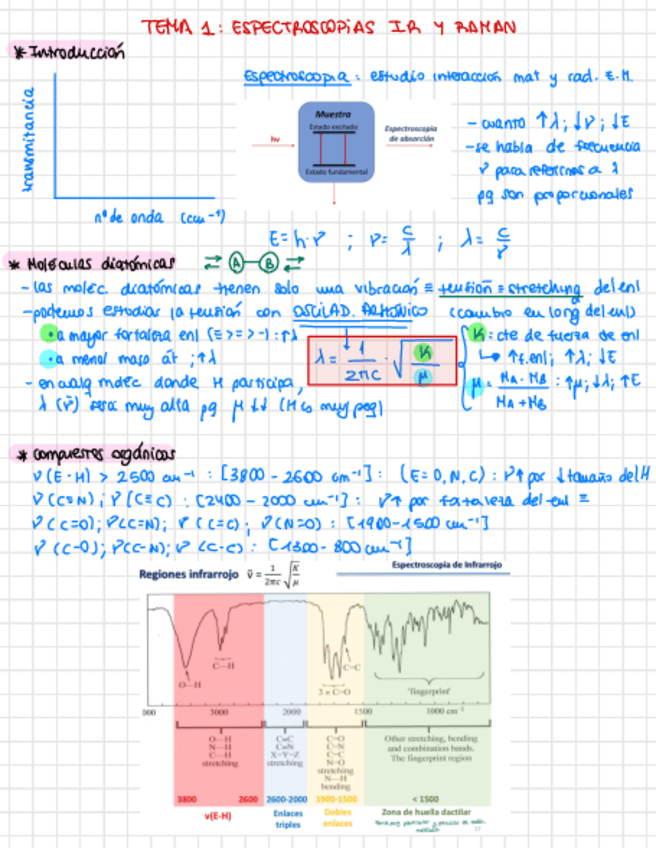 TEMA 1: ESPECTROSCOPÍAS IR Y RAMAN
* Introducción
Espectroscopía: estudio interacción mat y rad. E.M.
transmitancia
nº de onda (cm⁻¹)
Muestra
Estado excitado
Estado fundamental
hν
Espectroscopía
de absorción
- cuanto ↑λ; ↓ν; ↓E
- se habla de frecuencia
ν para referirnos a λ
pq son proporcionales
E = h·ν ; ν = c/λ ; λ = c/ν
* Moléculas diatómicas ⇄ A - B ⇄
- las moléc. diatómicas tienen solo una vibración ≡ tensión ≡ stretching del enl
- podemos estudiar la tensión con OSCILAD. ARMÓNICO (cambio en long del enl)
· a mayor fortaleza enl (≡>=>-) : ↑λ
· a menor masa at ; ↑λ
- en cualq moléc donde H participa,
λ (ν̄) será muy alta pq μ ↓↓ (H es muy peq)
λ = 1/2πc · √K/μ
K: cte de fuerza de enl
↳ ↑f.enl; ↑λ; ↓E
μ = MA·MB/MA+MB : ↑μ; ↓λ; ↑E
* compuestos orgánicos
ν (E-H) > 2500 cm⁻¹ : [3800 - 2600 cm⁻¹] : (E=O, N, C) : ν↑ por ↓tamaño del H
ν (C≡N) ; ν (C≡C) : [2400 - 2000 cm⁻¹] : ν↑ por fortaleza del enl ≡
ν (C=O); ν(C=N); ν (C=C) ; ν(N=O) : [1900-1500 cm⁻¹]
ν (C-O); ν(C-N); ν (C-C) : [1300 - 800 cm⁻¹]
Espectroscopía de Infrarrojo
Regiones infrarrojo ν̄ = 1/2πc √K/μ
O—H
C—H
C=C
C=O
'fingerprint'
000 3000 2000 1500 1000 cm⁻¹
O—H
N—H
C—H
stretching
C≡C
C≡N
X=Y=Z
stretching
C=O
C=N
C=C
N=O
stretching
N—H
bending
Other stretching, bending
and combination bands.
The fingerprint region
3800 2600 2600-2000 1900-1500 < 1500
ν(E-H)
Enlaces
triples
Dobles
enlaces
Zona de huella dactilar
17